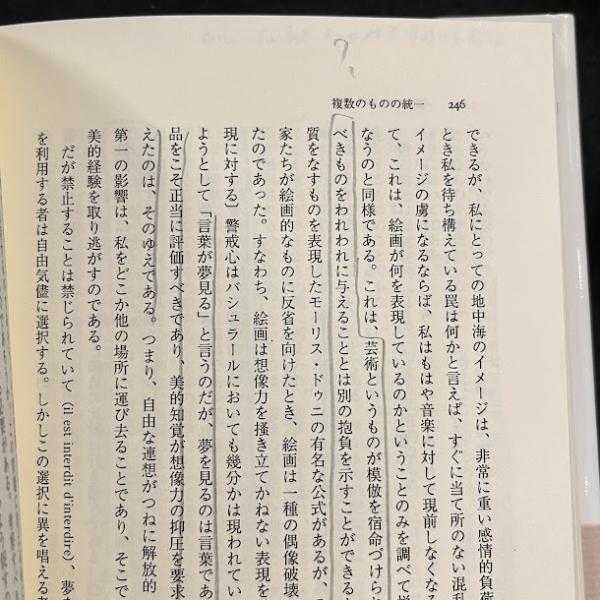 複数のものの統一 246
できるが、私にとっての地中海のイメージは、非常に重い感情的負荷
とき私を待ち構えている罠は何かと言えば、すぐに当て所のない混乱
イメージの虜になるならば、私はもはや音楽に対して現前しなくなる
て、これは、絵画が何を表現しているのかということのみを調べて
なうのと同様である。これは、芸術というものが模倣を宿命づけられ
べきものをわれわれに与えることとは別の抱負を示すことができると
質をなすものを表現したモーリス・ドゥニの有名な公式があるが、
家たちが絵画的なものに反省を向けたとき、絵画は一種の偶像破壊
たのであった。すなわち、絵画は想像力を掻き立てかねない表現を
現に対する〕警戒心はバシュラールにおいても幾分かは現われてい
ようとして「言葉が夢見る」と言うのだが、夢を見るのは言葉であ
品をこそ正当に評価すべきであり、美的知覚が想像力の抑圧を要求
えたのは、そのゆえである。つまり、自由な連想がつねに解放的
第一の影響は、私をどこか他の場所に運び去ることであり、そこで
美的経験を取り逃がすのである。
だが禁止することは禁じられていて（il est interdit d'interdire）、夢を
を利用する者は自由気儘に選択する。しかしこの選択に異を唱える